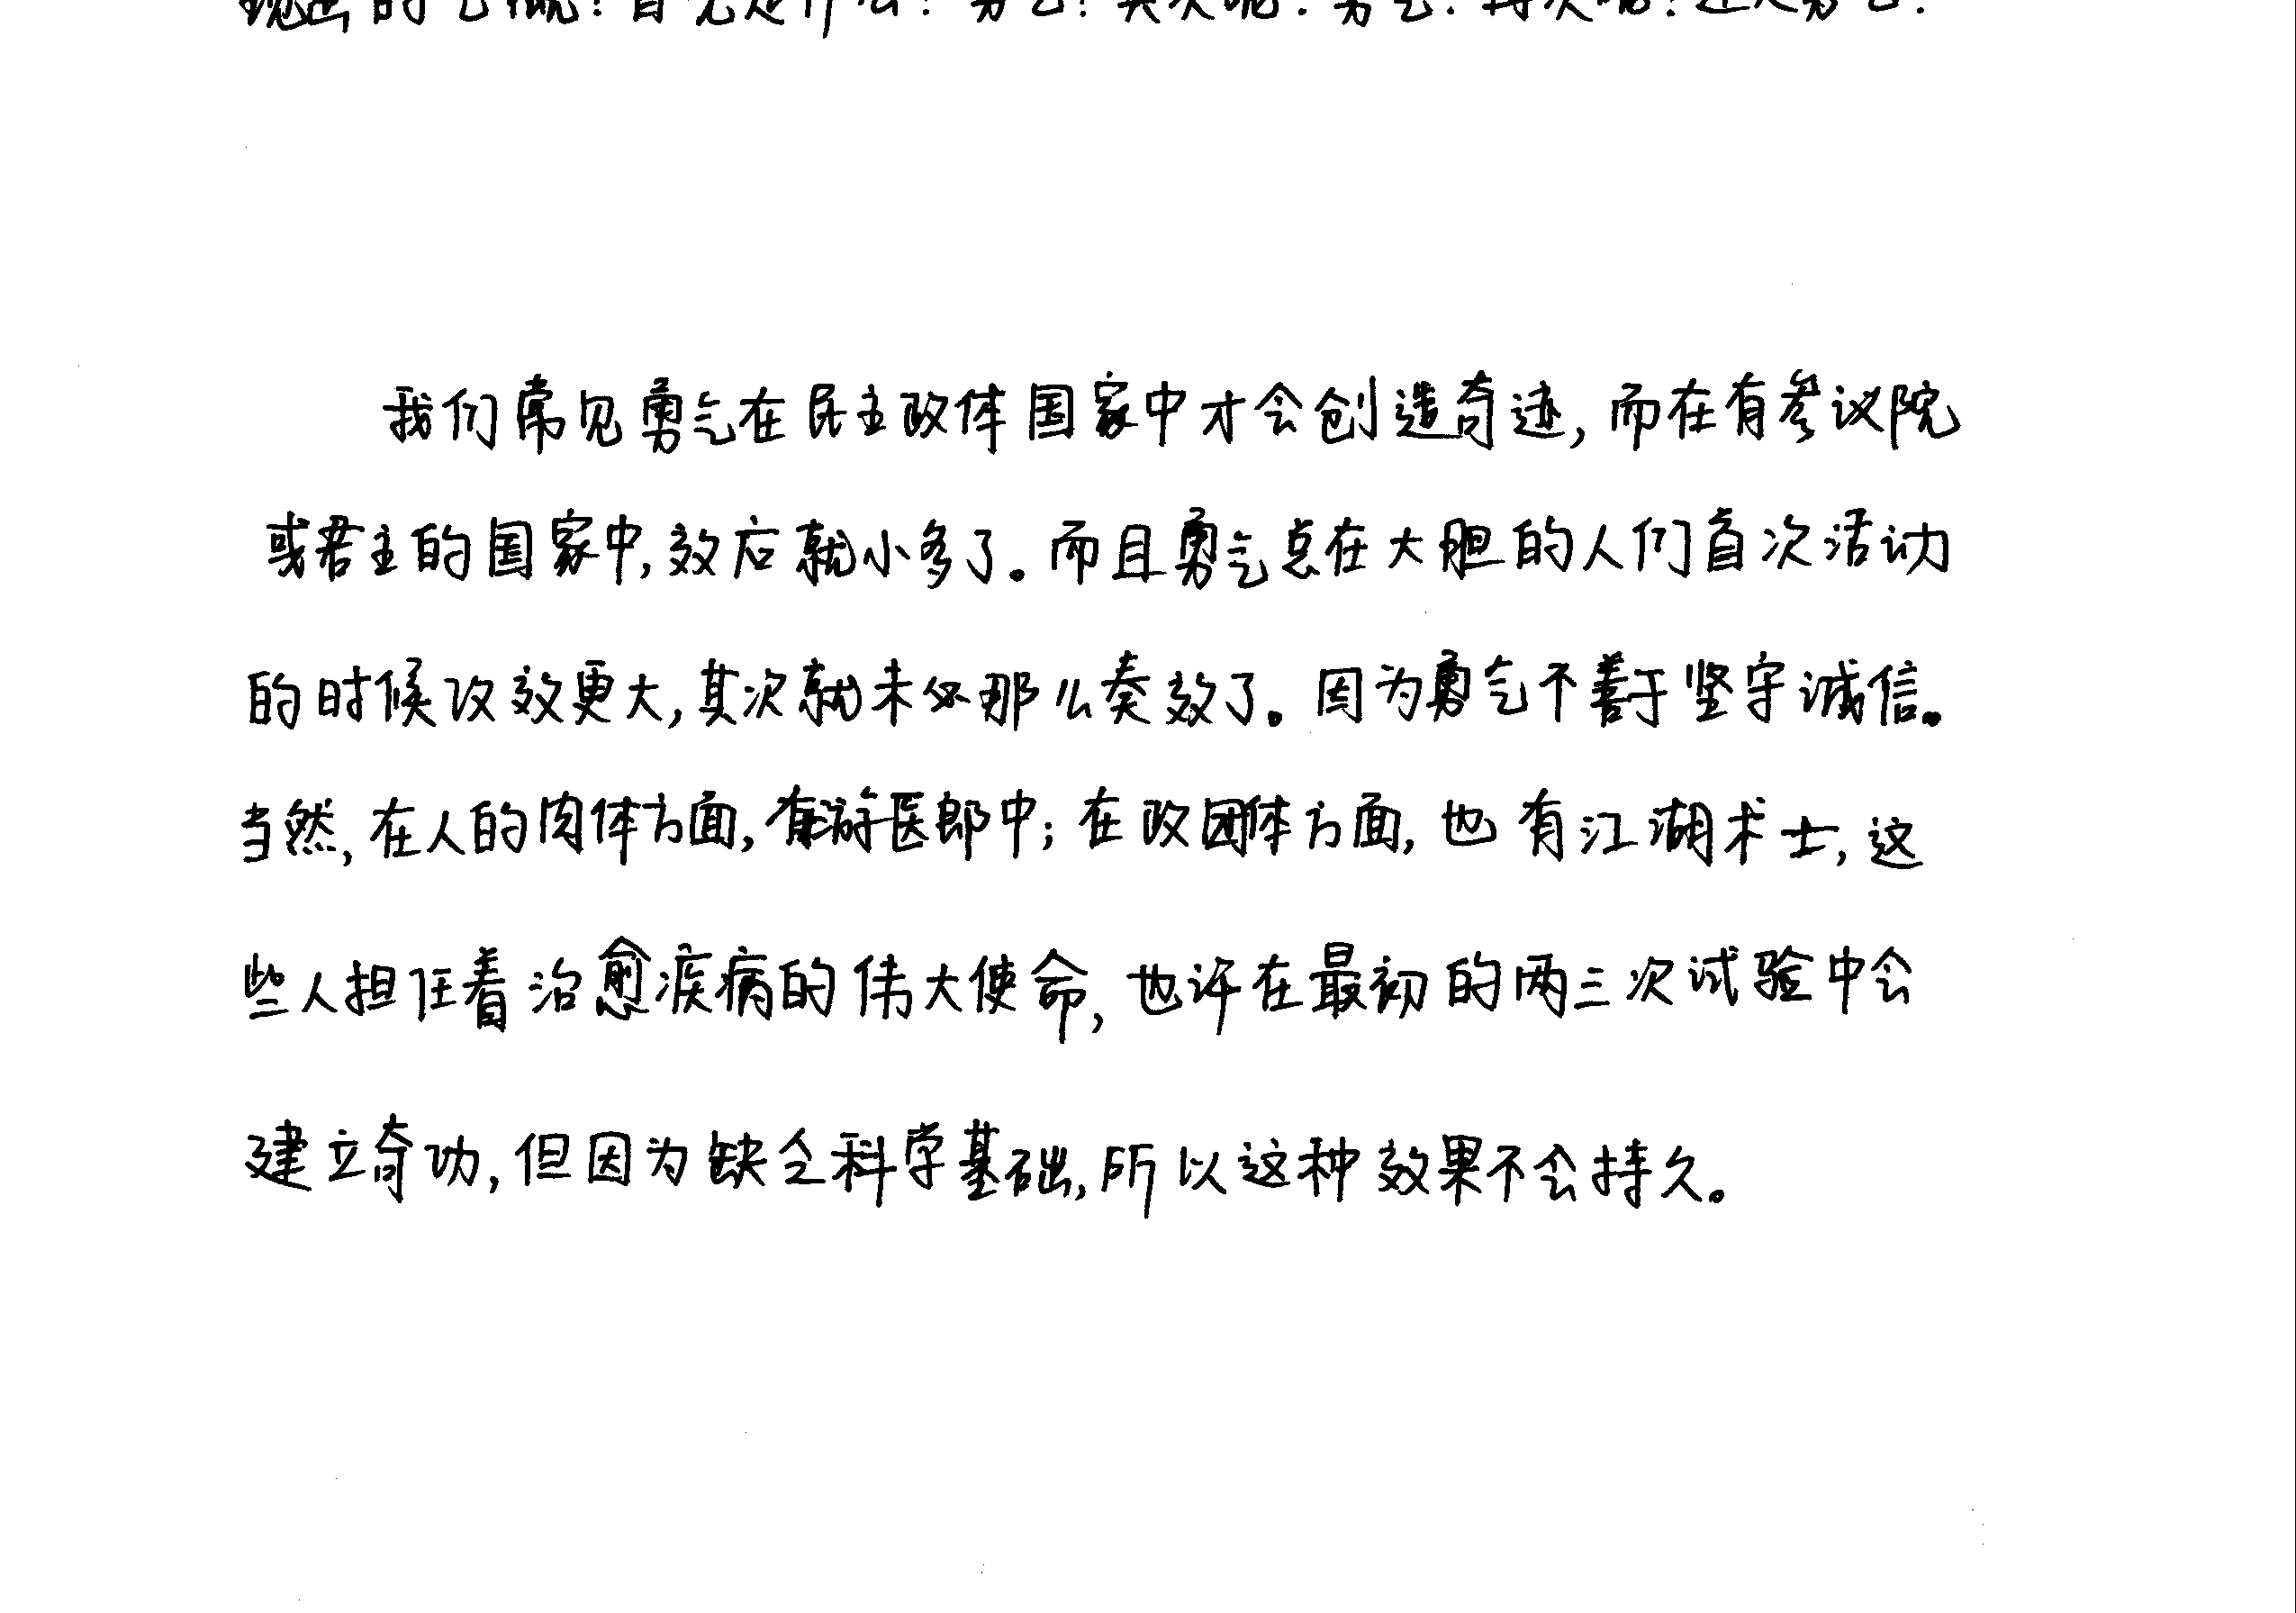 我们常见勇气在民主政体国家中才会创造奇迹，而在有参议院
或君主的国家中，效后就小多了。而且勇气总在大胆的人们首次活动
的时候攻效更大，其次就未必那么奏效了。因为勇气不善于坚守诚信。
当然，在人的肉体方面，有游医郎中；在政团体方面，也有江湖术士，这
些人担任着治愈疾病的伟大使命，也许在最初的两三次试验中会
建立奇功，但因为缺乏科学基础，所以这种效果不会持久。